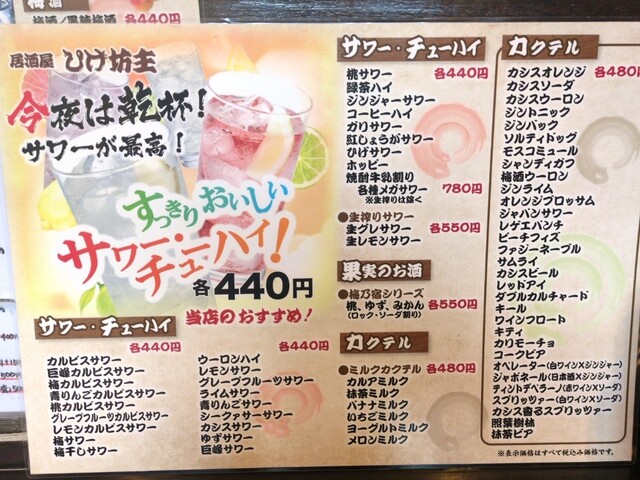 梅酒
梅酒/黒糖梅酒 各440円
居酒屋 ひげ坊主
今夜は乾杯!
サワーが最高!
すっきりおいしい
サワー・チューハイ!
各440円
当店のおすすめ!
サワー・チューハイ
各440円
カルピスサワー
巨峰カルピスサワー
梅カルピスサワー
青りんごカルピスサワー
桃カルピスサワー
グレープフルーツカルピスサワー
レモンカルピスサワー
梅サワー
梅干しサワー
各440円
ウーロンハイ
レモンサワー
グレープフルーツサワー
ライムサワー
青りんごサワー
シークァーサーサワー
カシスサワー
ゆずサワー
巨峰サワー
サワー・チューハイ
桃サワー 各440円
緑茶ハイ
ジンジャーサワー
コーヒーハイ
ガリサワー
紅しょうがサワー
ひげサワー
ホッピー
焼酎牛乳割り
各種メガサワー 780円
※生搾りは除く
●生搾りサワー
生グレサワー 各550円
生レモンサワー
果実のお酒
●梅乃宿シリーズ
桃、ゆず、みかん 各550円
(ロック・ソーダ割り)
カクテル
●ミルクカクテル 各480円
カルアミルク
抹茶ミルク
バナナミルク
いちごミルク
ヨーグルトミルク
メロンミルク
カクテル
カシスオレンジ 各480円
カシスソーダ
カシスウーロン
ジントニック
ジンバック
ソルティドッグ
モスコミュール
シャンディガフ
梅酒ウーロン
ジンライム
オレンジブロッサム
ジャパンサワー
レゲエパンチ
ピーチフィズ
ファジーネーブル
サムライ
カシスビール
レッドアイ
ダブルカルチャード
キール
ワインフロート
キティ
カリモーチョ
コークビア
オペレーター(白ワイン×ジンジャー)
ジャポネール(日本酒×ジンジャー)
ティントデベラーノ(赤ワイン×ソーダ)
スプリッツァー(白ワイン×ソーダ)
カシス香るスプリッツァー
照葉樹林
抹茶ビア
※表示価格はすべて税込み価格です。